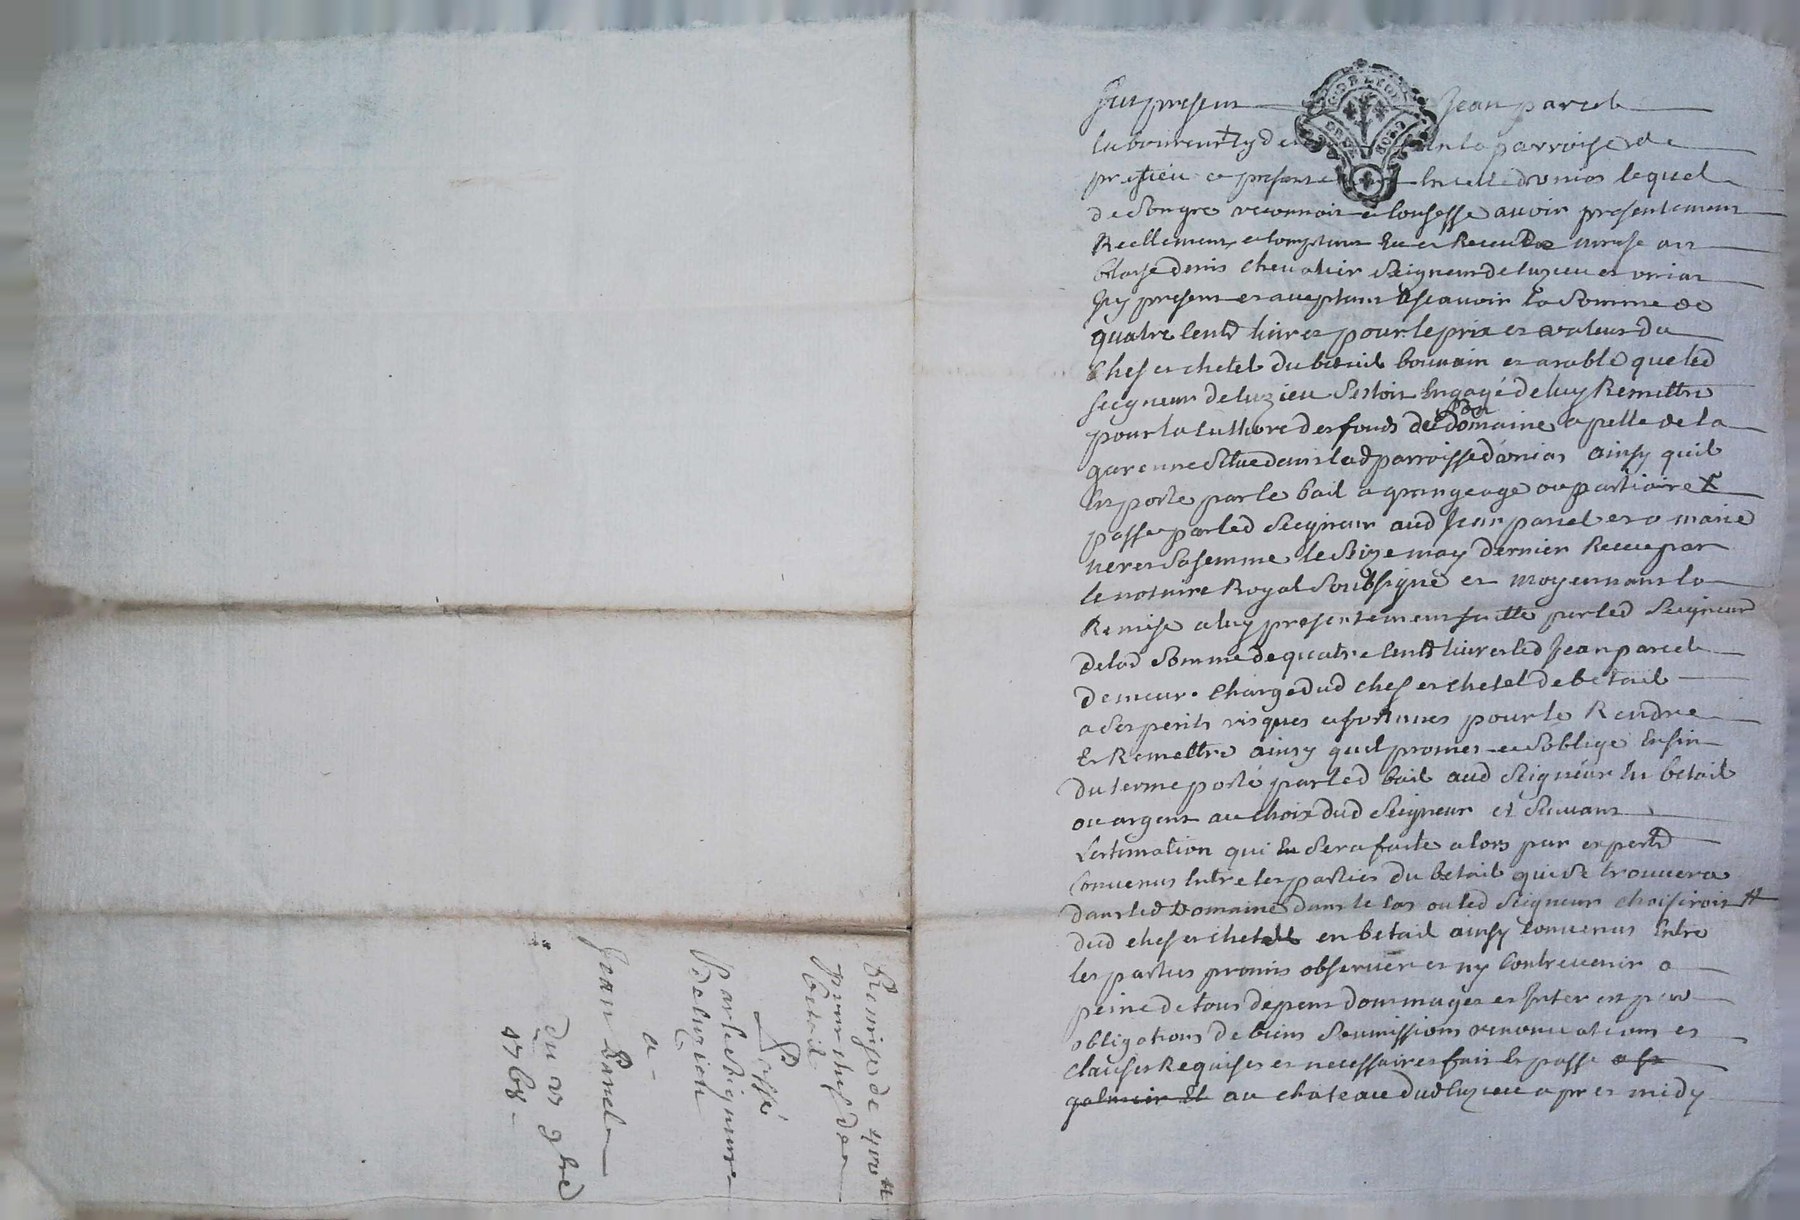 Fut present Jean parcel
laboureur
prestieu
de Son gré reconnoit et Confesse avoir presentement
Reellement et Comptant Eu et Receu De messe an
blaise denis chevalier Seigneur de luzieu et unias
Icy present et aceptant Ascavoir la Somme de
quatre Cents livres pour le prix et valeur du
Chef et chetel du betail bouvain et arable que led
Seigneur de luzieu Sestoit Engagé de luy Remettre
pour la Culture des fonds de Son domaine apellé de la
garenne Situé dans lad parroisse dunias ainsy quil
Est porté par le bail a grangeage ou partiaire
passé par led Seigneur aud Jean parcel et a marie
Sa femme le Seize may dernier Receu par
le notaire Royal Soubsigné et moyennant la
Remise a luy presentement faitte par led Seigneur
de lad Somme de quatre Cents livres led Jean parcel
demeure Chargé dud chef et chetel de betail
a Ses perils risques et fortunes pour le Rendre
Et Remettre ainsy quil promet et Soblige En fin
du terme porté par led bail aud Seigneur En betail
ou argent au choix dud Seigneur et Suivant
Lestimation qui En Sera faite alors par experts
Convenus Entre les parties du betail qui Se trouvera
dans led Domaine dans le Cas ou led Seigneur choisiroit
dud chef et chetel en betail ainsy Convenus Entre
les parties promis observer et ny Contrevenir a
peine de tous depens dommages et Interest par
obligations de biens Soumissions renonciations et
Clauses Requises et necessaires fait Et passé a St
galmier Et au chateau dud luzieu apres midy
Remise de 400 ll
pour chef de
betail
Passé
Par le Seigneur
De luzieu
a
Jean Parcel
du 23 9bre
1768